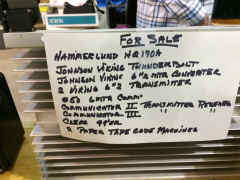 FOR SALE
HAMMERLUND HQ170A
JOHNSON VIKING THUNDERBOLT
JOHNSON VIKING 6N2 MTR CONVERTER
2 VIKING 6N2 TRANSMITTER
COMMUNICATOR III TRANSMITTER RECEIVER
COMMUNICATOR III " "
CLEGG 99'ER
2 PAPER TAPE CODE MACHINES